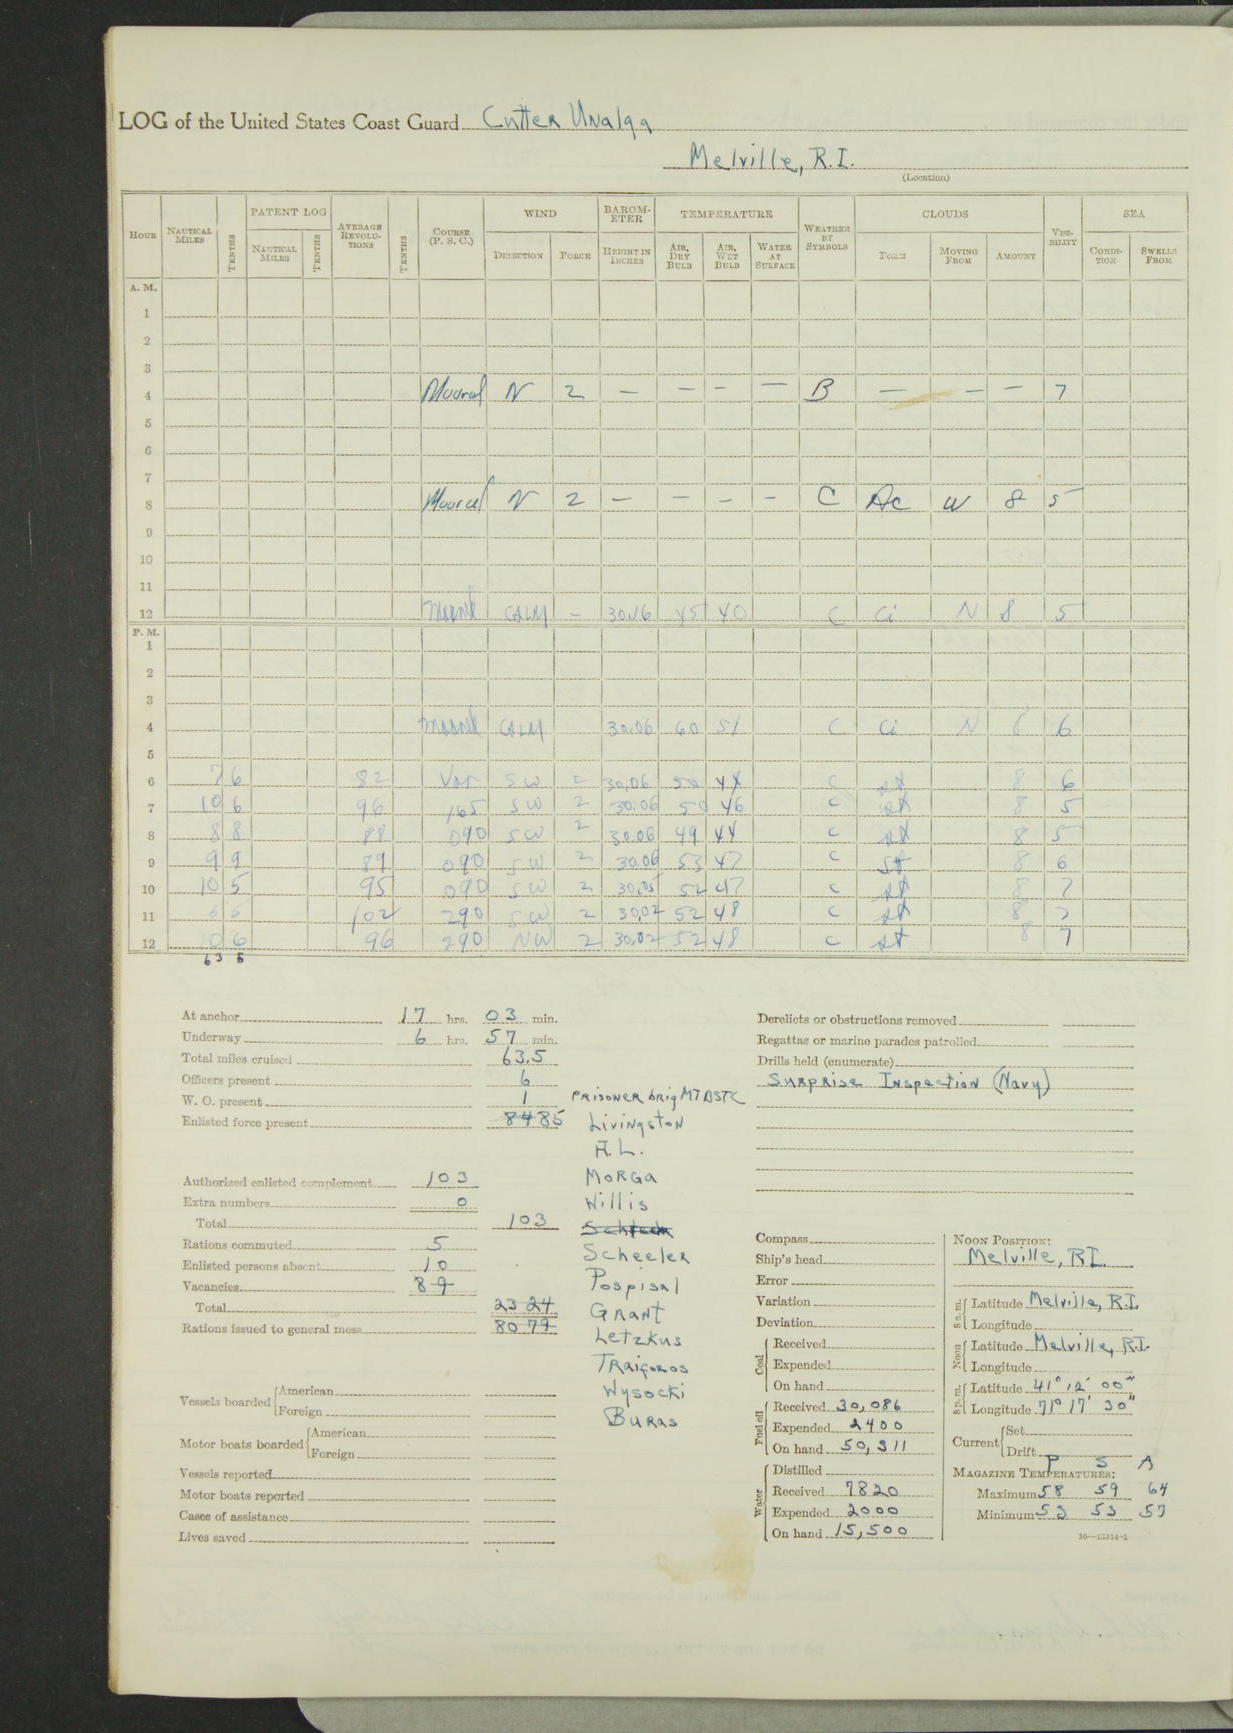 LOG of the United States Coast Guard Cutter Unalga
Melville, R.I.
(Location)
HOUR NAUTICAL MILES TENTHS PATENT LOG NAUTICAL MILES TENTHS AVERAGE REVOLUTIONS TENTHS COURSE (P. S. C.) WIND DIRECTION FORCE BAROMETER HEIGHT IN INCHES TEMPERATURE AIR, DRY BULB AIR, WET BULB WATER AT SURFACE WEATHER BY SYMBOLS CLOUDS FORM MOVING FROM AMOUNT VISIBILITY SEA CONDITION SWELLS FROM
A. M.
1
2
3
4 Moored N 2 — — — — B — — — 7
5
6
7
8 Moored N 2 — — — — C Ac W 8 5
9
10
11
12 Moored CALM — 30.16 45 40 C Ci N 8 5
P. M.
1
2
3
4 Moored CALM 30.06 60 51 C Ci N 8 6
5
6 7 6 82 Var SW 2 30.06 50 44 C st 8 6
7 10 6 96 165 SW 2 30.06 50 46 C st 8 5
8 8 8 88 090 SW 2 30.06 49 44 C st 8 5
9 9 9 89 090 SW 2 30.06 53 47 C st 8 6
10 10 5 95 090 SW 2 30.05 52 47 C st 8 7
11 102 290 SW 2 30.02 52 48 C st 8 7
12 10 6 96 290 NW 2 30.02 52 48 C st 8 7
63 5
At anchor 17 hrs. 03 min.
Underway 6 hrs. 57 min.
Total miles cruised 63.5
Officers present 6
W. O. present 1
Enlisted force present 84 85
Authorized enlisted complement 103
Extra numbers 0
Total 103
Rations commuted 5
Enlisted persons absent 10
Vacancies 8 9
Total 23 24
Rations issued to general mess 80 79
Vessels boarded American
Foreign
Motor boats boarded American
Foreign
Vessels reported
Motor boats reported
Cases of assistance
Lives saved
Prisoner brig MTBSTC
Livingston
A.L.
Morga
Willis
Scheeler
Pospisal
Grant
Letzkus
Traigoros
Wysocki
Buras
Derelicts or obstructions removed
Regattas or marine parades patrolled
Drills held (enumerate)
Surprise Inspection (Navy)
Compass
Ship's head
Error
Variation
Deviation
Coal Received
Expended
On hand
Fuel oil Received 30,086
Expended 2400
On hand 50,311
Water Distilled
Received 7820
Expended 2000
On hand 15,500
NOON POSITION:
Melville, RI.
8 a.m. Latitude Melville, R.I.
Longitude
Noon Latitude Melville, R.I.
Longitude
8 p.m. Latitude 41° 12' 00"
Longitude 71° 17' 30"
Current Set
Drift
P S A
MAGAZINE TEMPERATURES:
Maximum 58 59 64
Minimum 53 53 57